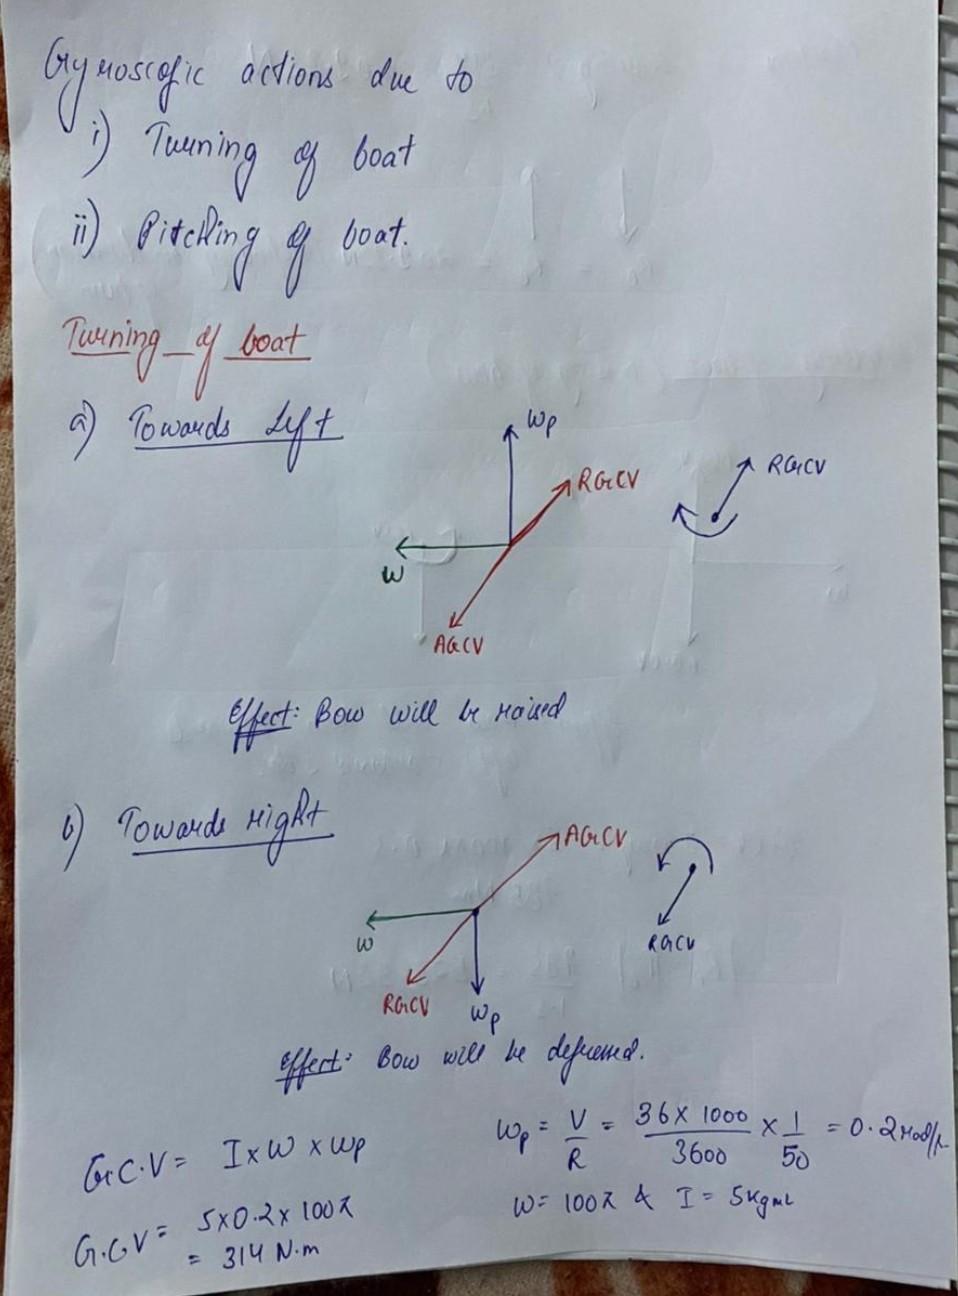 Gyroscopic actions due to
i) Turning of boat
ii) Pitching of boat.
Turning of boat
a) Towards Left
ωp
RGCV
RGCV
ω
AGCV
Effect: Bow will be raised
b) Towards right
AGCV
ω
RGCV
RGCV
ωp
Effect: Bow will be depressed.
G.C.V = I x ω x ωp
ωp = V/R = 36 x 1000/3600 x 1/50 = 0.2 rad/s
ω = 100π & I = 5kgm²
G.C.V = 5x0.2x 100π
= 314 N.m